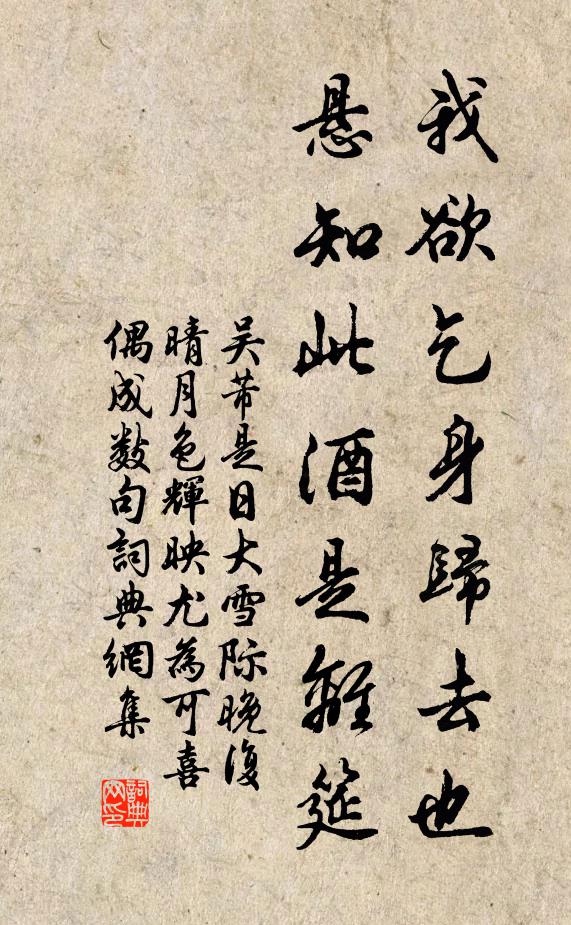 我欲乞身歸去也
悬知此酒是離筵
吴芾是日大雪际晚復
晴月色輝映尤為可喜
偶成数句詞典網集
詞典
网印